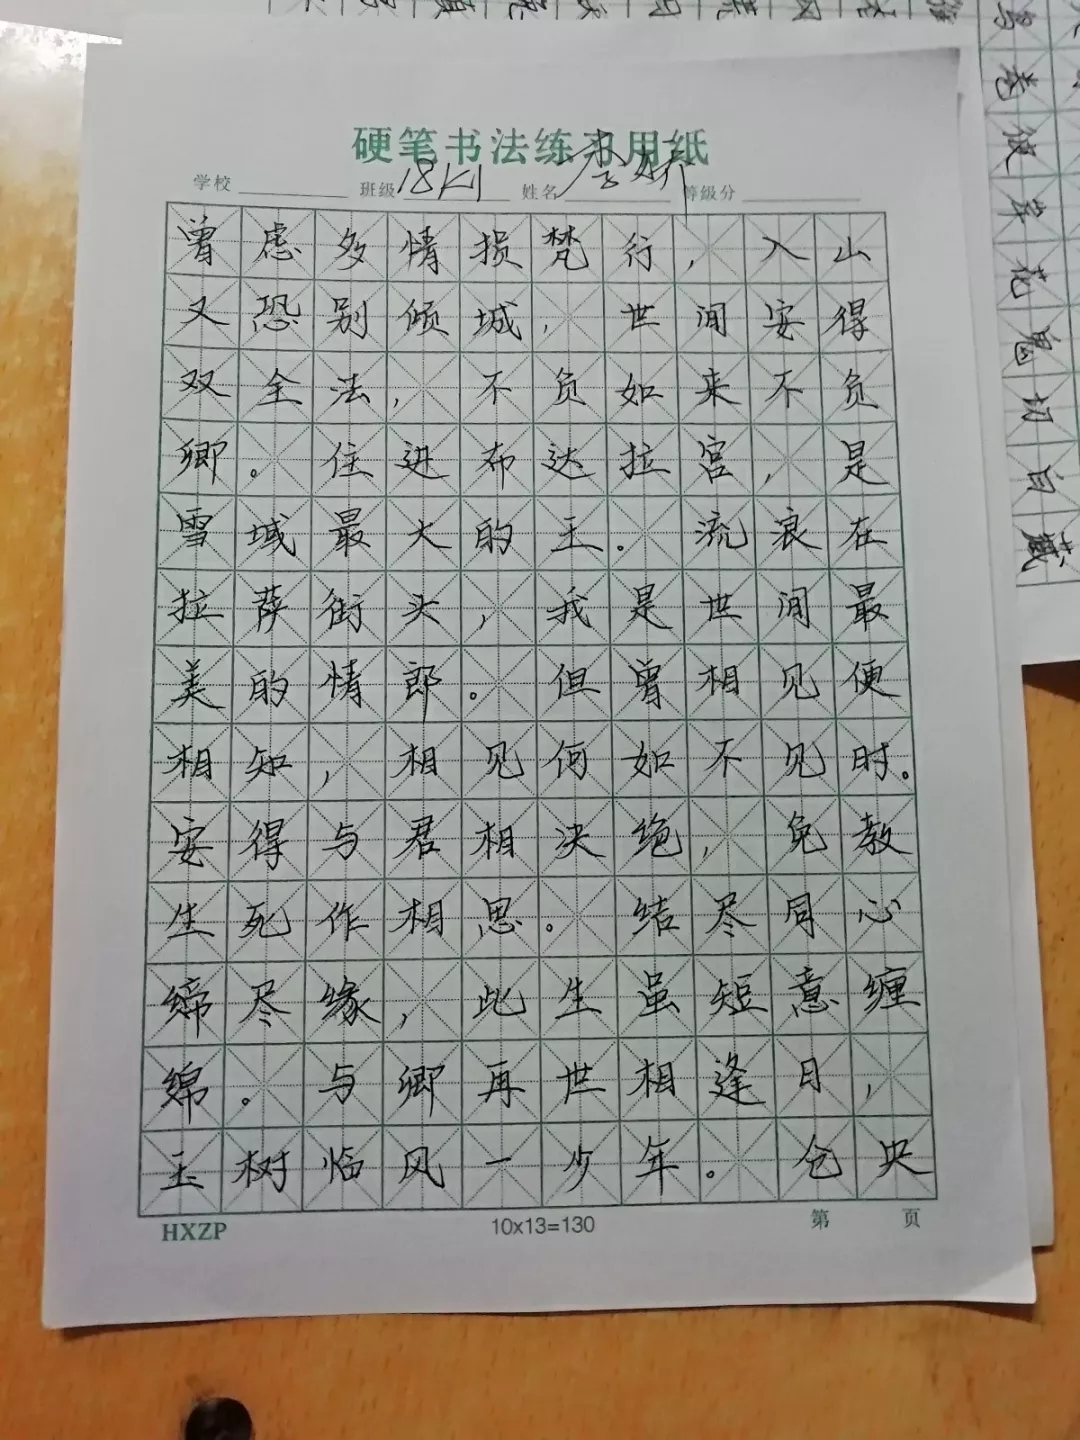 硬笔书法练习用纸
学校 班级 18K1 姓名 李娇 等级分
曾虑多情损梵行，入山
又恐别倾城，世间安得
双全法，不负如来不负
卿。住进布达拉宫，是
雪域最大的王。流浪在
拉萨街头，我是世间最
美的情郎。但曾相见便
相知，相见何如不见时。
安得与君相决绝，免教
生死作相思。结尽同心
缔尽缘，此生虽短意缠
绵。与卿再世相逢日，
玉树临风一少年。仓央
HXZP 10x13=130 第 页